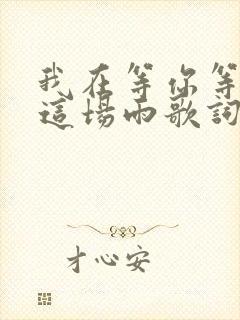 我在等你等
這場雨歌詞
才心安